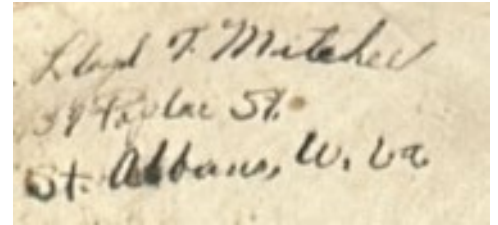 Lloyd T. Mitchell
39 Poplar St.
St. Albans, W. Va.